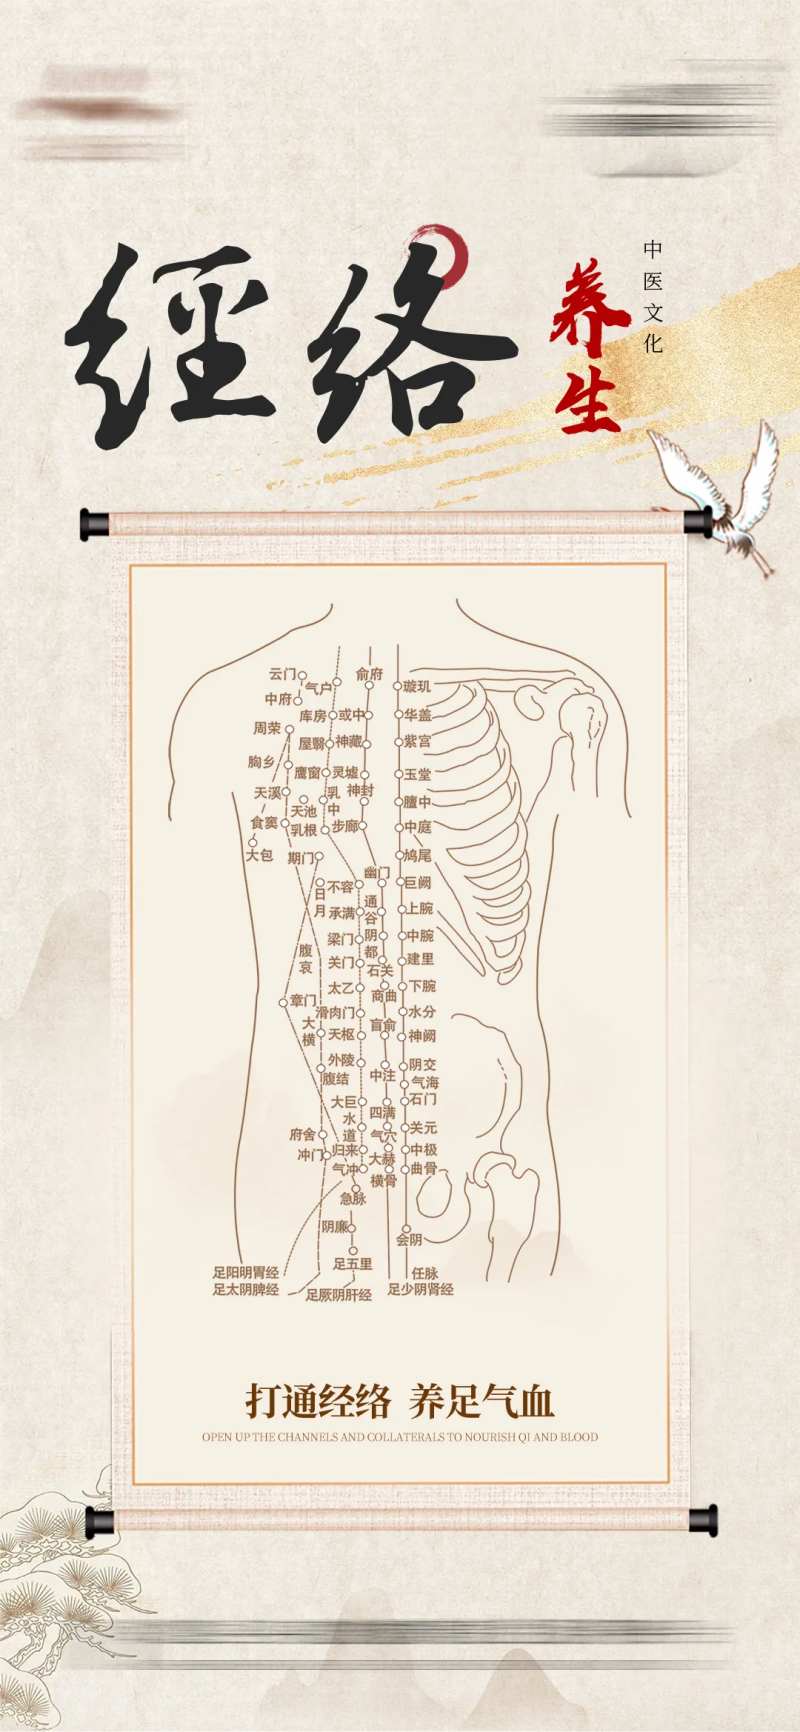 經络
养生
中医文化
云门
气户
俞府
璇玑
中府
库房
或中
华盖
周荣
屋翳
神藏
紫宫
胸乡
鹰窗
灵墟
玉堂
天溪
天池
乳中
神封
膻中
食窦
乳根
步廊
中庭
大包
期门
鸠尾
幽门
日月
不容
巨阙
承满
通谷
上脘
梁门
阴都
中脘
腹哀
关门
石关
建里
太乙
商曲
下脘
章门
滑肉门
水分
大横
天枢
肓俞
神阙
外陵
阴交
腹结
中注
气海
大巨
石门
水道
四满
府舍
气穴
关元
冲门
归来
大赫
中极
气冲
横骨
曲骨
急脉
阴廉
会阴
足五里
足阳明胃经
任脉
足太阴脾经
足厥阴肝经
足少阴肾经
打通经络 养足气血
OPEN UP THE CHANNELS AND COLLATERALS TO NOURISH QI AND BLOOD